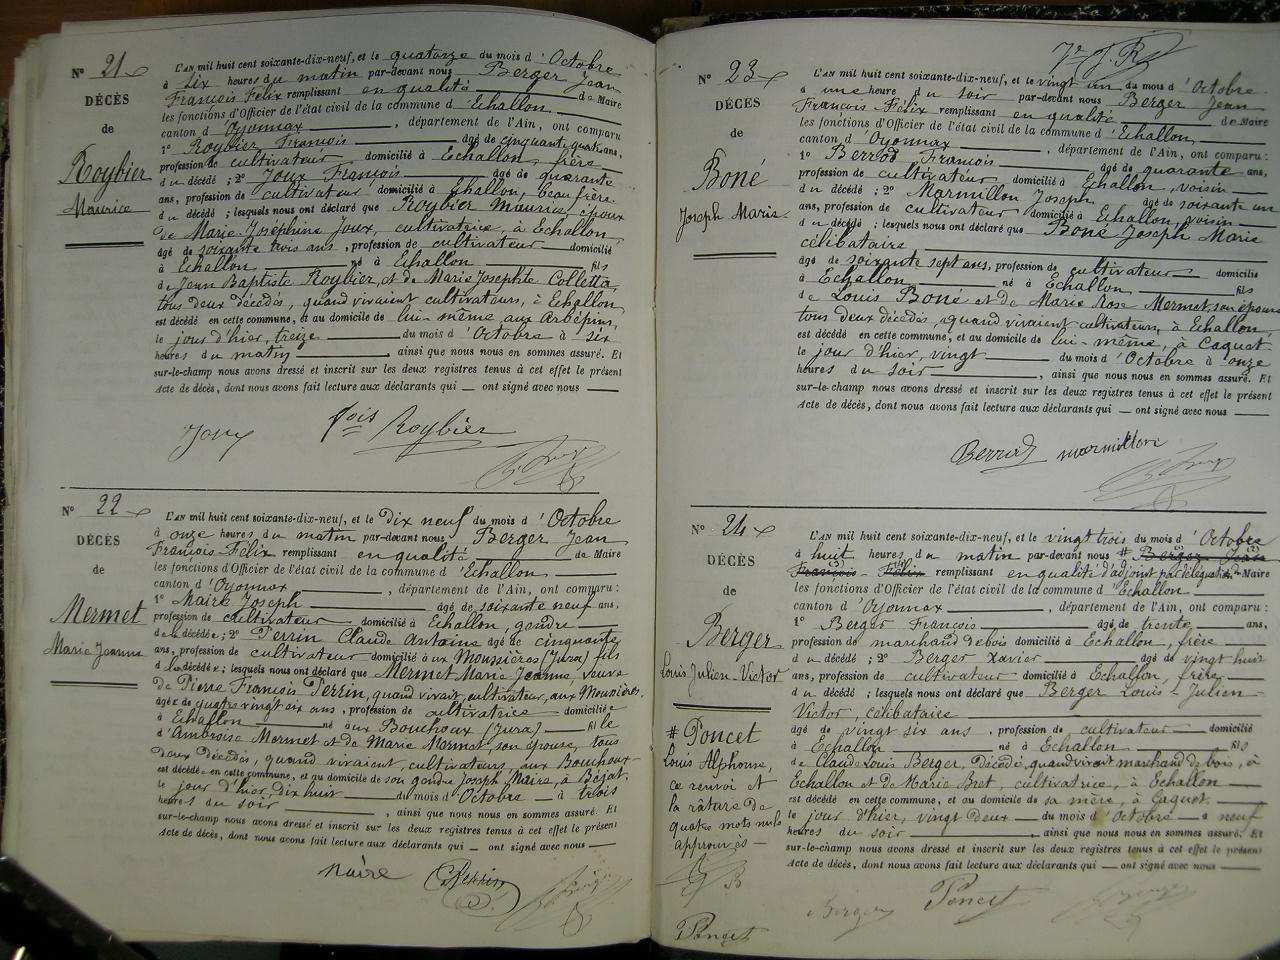 N° 21
DÉCÈS
de
Roybier
Maurice
L'AN mil huit cent soixante-dix-neuf, et le quatorze du mois d'Octobre
à six heures du matin par-devant nous Berger Jean
François Félix remplissant en qualité de Maire
les fonctions d'Officier de l'état civil de la commune d'Echallon
canton d'Oyonnax, département de l'Ain, ont comparu
1° Roybier François âgé de cinquante quatre ans,
profession de cultivateur domicilié à Echallon, frère
du décédé ; 2° Joux François âgé de quarante
ans, profession de cultivateur domicilié à Echallon, beau frère
du décédé ; lesquels nous ont déclaré que Roybier Maurice, époux
de Marie Josephine Joux, cultivatrice, à Echallon,
âgé de soixante trois ans, profession de cultivateur domicilié
à Echallon né à Echallon fils
de Jean Baptiste Roybier et de Marie Josephte Colletta,
tous deux décédés, quand vivaient cultivateurs, à Echallon
est décédé en cette commune, et au domicile de lui-même aux Arbépins,
le jour d'hier, treize du mois d'Octobre à six
heures du matin, ainsi que nous nous en sommes assuré. Et
sur-le-champ nous avons dressé et inscrit sur les deux registres tenus à cet effet le présent
Acte de décès, dont nous avons fait lecture aux déclarants qui — ont signé avec nous
Joux fois Roybier
N° 22
DÉCÈS
de
Mermet
Marie Jeanne
L'AN mil huit cent soixante-dix-neuf, et le dix neuf du mois d'Octobre
à onze heures du matin par-devant nous Berger Jean
François-Félix remplissant en qualité de Maire
les fonctions d'Officier de l'état civil de la commune d'Echallon
canton d'Oyonnax, département de l'Ain, ont comparu :
1° Maire Joseph âgé de soixante neuf ans,
profession de cultivateur domicilié à Echallon, gendre
de la décédée ; 2° Perrin Claude Antoine âgé de cinquante
ans, profession de cultivateur domicilié à ux Moussières (Jura) fils
de la décédée ; lesquels nous ont déclaré que Mermet Marie Jeanne, veuve
de Pierre François Perrin, quand vivait, cultivateur, aux Moussières,
âgée de quatre vingt six ans, profession de cultivatrice domiciliée
à Echallon née aux Bouchoux (Jura) fille
d'Ambroise Mermet et de Marie Mermet, son épouse, tous
deux décédés, quand vivaient, cultivateurs, aux Bouchoux
est décédée en cette commune, et au domicile de son gendre Joseph Maire, à Bézat,
le jour d'hier, dix huit du mois d'Octobre à trois
heures du soir, ainsi que nous nous en sommes assuré. Et
sur-le-champ nous avons dressé et inscrit sur les deux registres tenus à cet effet le présent
Acte de décès, dont nous avons fait lecture aux déclarants qui — ont signé avec nous
Maire Perrin
N° 23
DÉCÈS
de
Boné
Joseph Marie
L'AN mil huit cent soixante-dix-neuf, et le vingt un du mois d'Octobre
à une heure du soir par-devant nous Berger Jean
François Félix remplissant en qualité de Maire
les fonctions d'Officier de l'état civil de la commune d'Echallon
canton d'Oyonnax, département de l'Ain, ont comparu :
1° Berrod François âgé de quarante ans,
profession de cultivateur domicilié à Echallon, voisin
du décédé ; 2° Marmillon Joseph âgé de soixante un
ans, profession de cultivateur domicilié à Echallon, voisin
du décédé ; lesquels nous ont déclaré que Boné Joseph Marie
célibataire
âgé de soixante sept ans, profession de cultivateur domicilié
à Echallon né à Echallon fils
de Louis Boné et de Marie Rose Mermet, son épouse
tous deux décédés, quand vivaient cultivateurs, à Echallon,
est décédé en cette commune, et au domicile de lui-même, à Caquet
le jour d'hier, vingt du mois d'Octobre à onze
heures du soir, ainsi que nous nous en sommes assuré. Et
sur-le-champ nous avons dressé et inscrit sur les deux registres tenus à cet effet le présent
Acte de décès, dont nous avons fait lecture aux déclarants qui — ont signé avec nous
Berrod marmillon
N° 24
DÉCÈS
de
Berger
Louis Julien-Victor
# Poncet
Louis Alphonse,
ce renvoi et
la râture de
quatre mots nuls
approuvés
Poncet
L'AN mil huit cent soixante-dix-neuf, et le vingt trois du mois d'Octobre
à huit heures du matin par-devant nous # Berger Jean
François-Félix remplissant en qualité d'adjoint par délégation
les fonctions d'Officier de l'état civil de la commune d'Echallon
canton d'Oyonnax, département de l'Ain, ont comparu :
1° Berger François âgé de trente ans,
profession de marchand de bois domicilié à Echallon, frère
du décédé ; 2° Berger Xavier âgé de vingt huit
ans, profession de cultivateur domicilié à Echallon, frère
du décédé ; lesquels nous ont déclaré que Berger Louis-Julien-
Victor, célibataire
âgé de vingt six ans, profession de cultivateur domicilié
à Echallon né à Echallon fils
de Claude Louis Berger, Décédé, quand vivait marchand de bois, à
Echallon et de Marie Bret, cultivatrice, à Echallon
est décédé en cette commune, et au domicile de sa mère, à Caquet
le jour d'hier, vingt deux du mois d'Octobre à neuf
heures du soir, ainsi que nous nous en sommes assuré. Et
sur-le-champ nous avons dressé et inscrit sur les deux registres tenus à cet effet le présent
Acte de décès, dont nous avons fait lecture aux déclarants qui — ont signé avec nous
Berger Poncet Berger